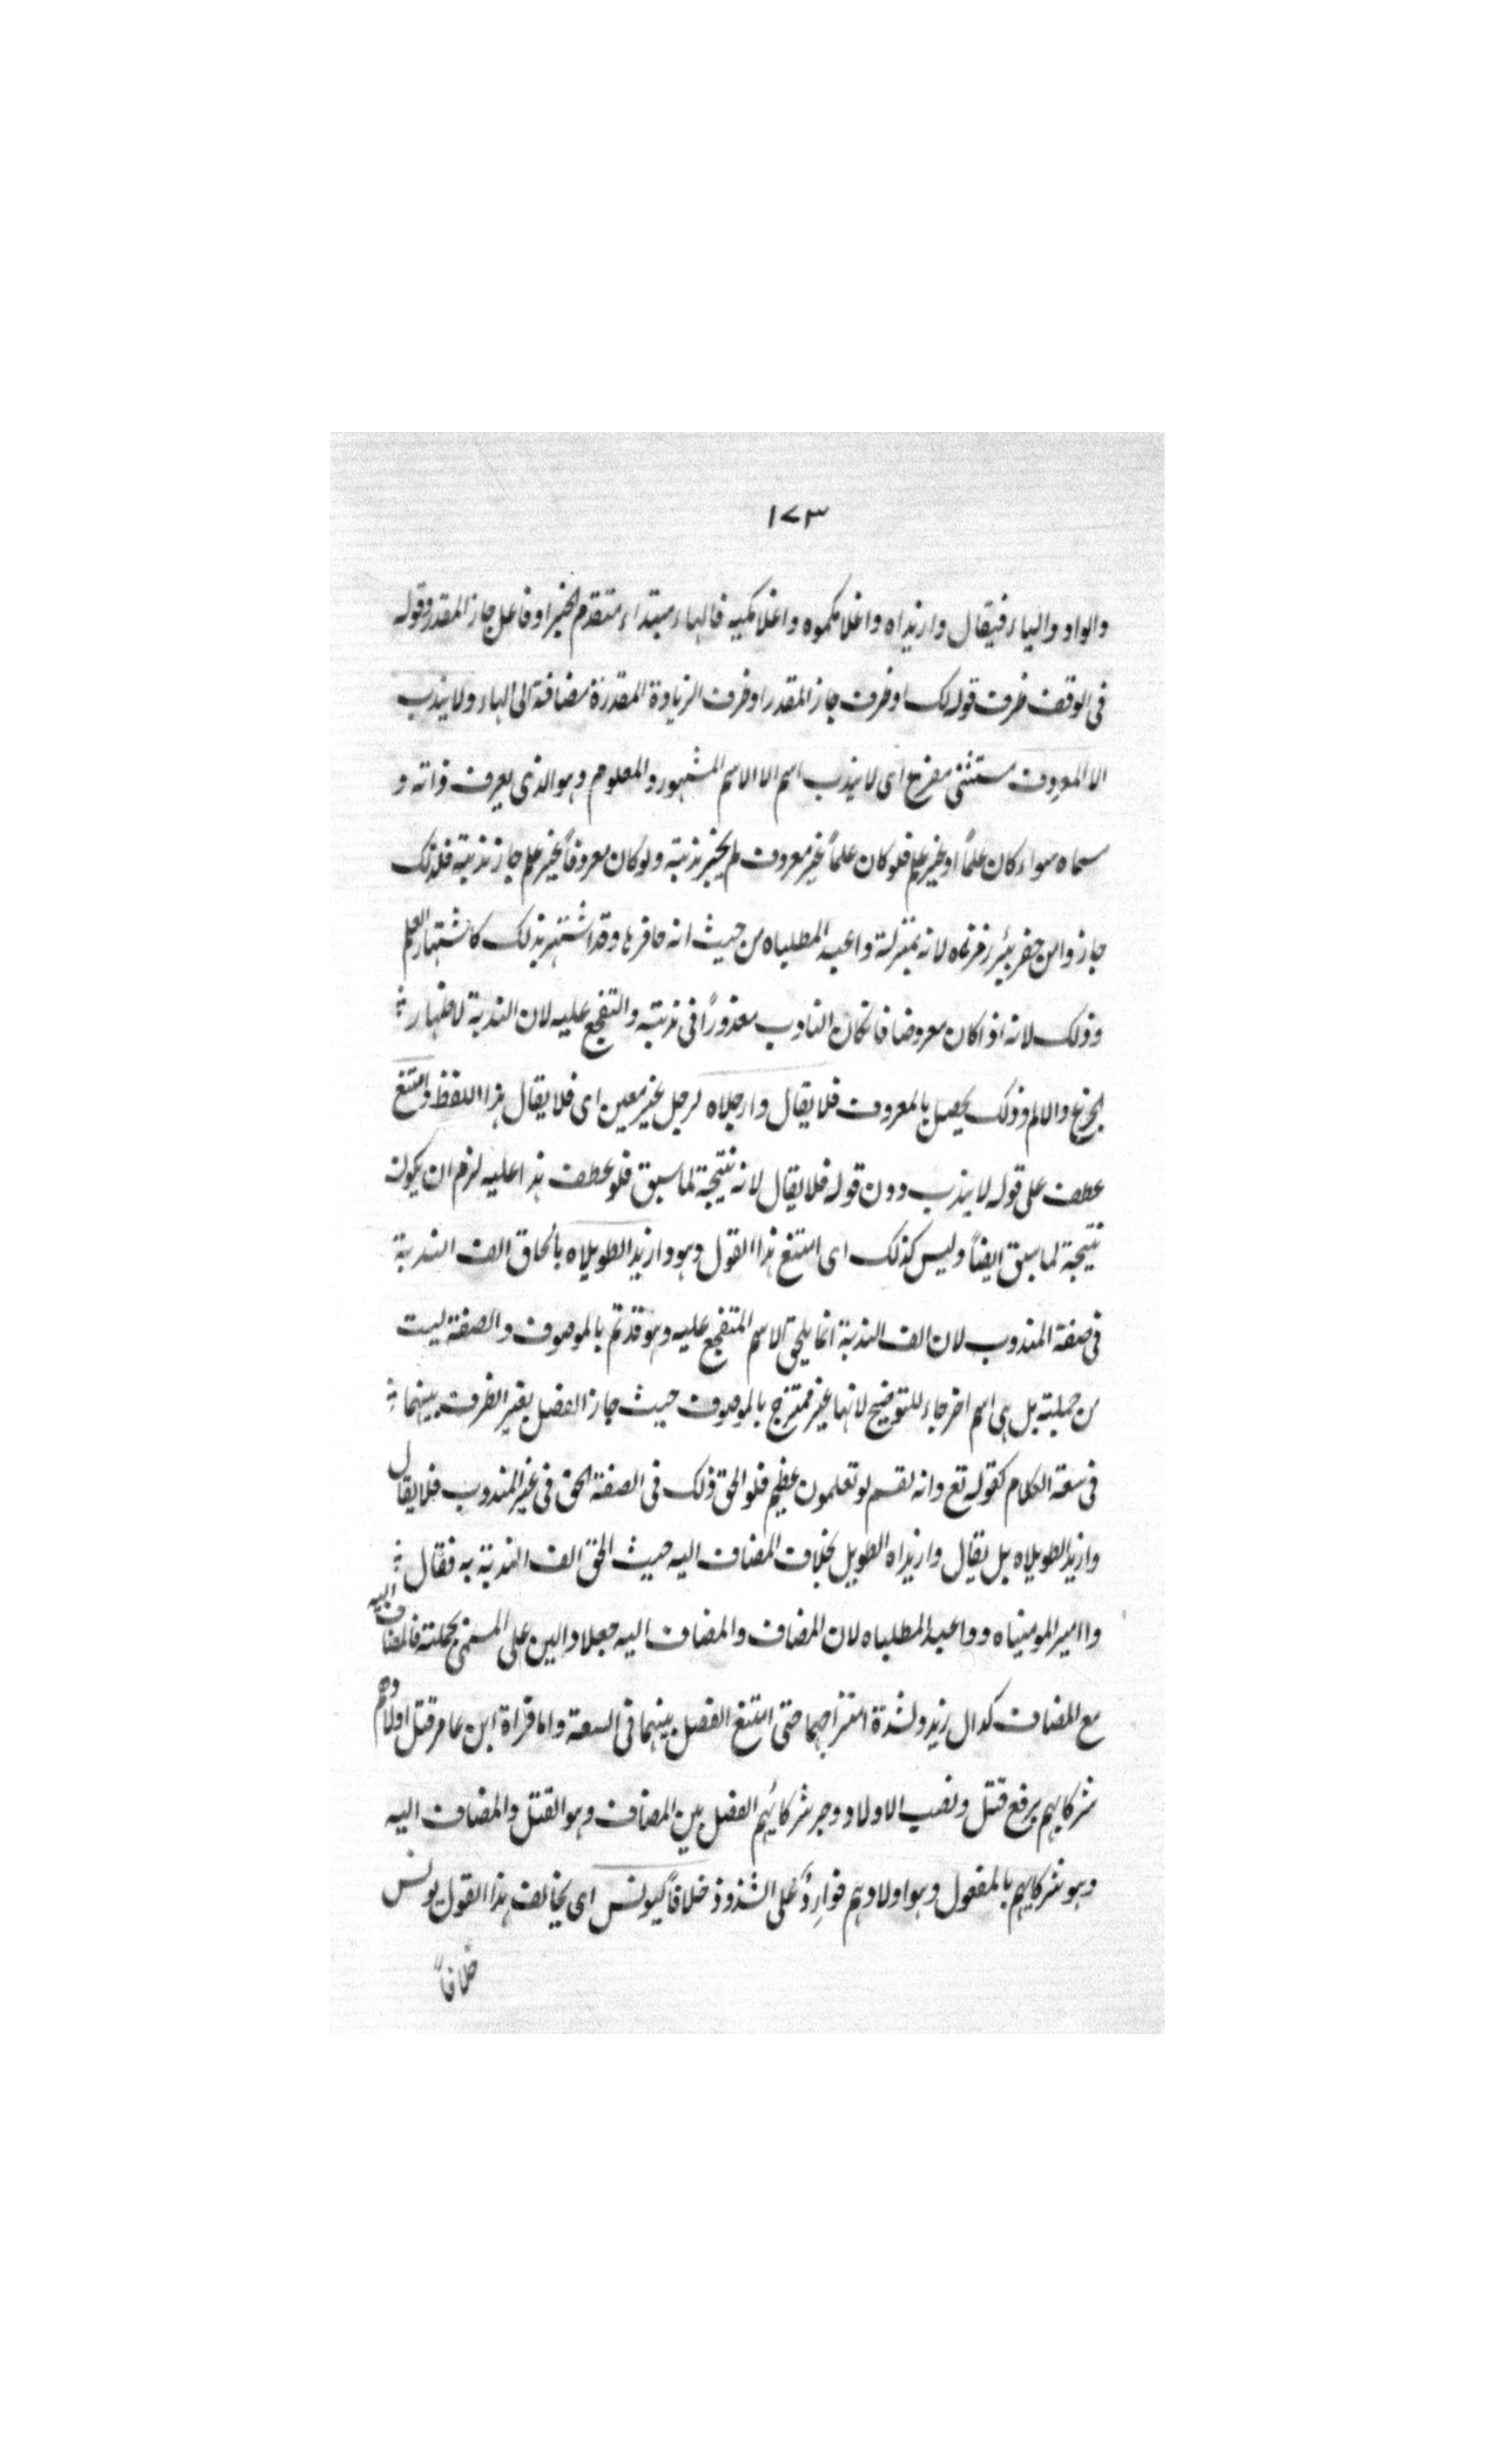 ١٧٣
والواو والياء فيقال وازيداه واغلامكموه واغلامكيه فالهاء مبتداء متقدم الخبر او فاعل جاز المقدر وقوله
فى الوقف ظرف قوله لك او ظرف جاز المقدر او ظرف الزيادة المقدرة مضافة الى الهاء ولا يندب
الا المعروف مستثنى مفرغ اى لا يندب اسم الا الاسم المشهور والمعلوم وهو الذى يعرف ذاته و
سماه سواء كان علمًا او غير علم فلو كان علمًا غير معروف لم يجز ندبته ولو كان معروفًا غير علم جاز ندبته فلذلك
جاز وامن حفر بئر زمزماه لانه بمنزلة واعبد المطلباه من حيث انه حافرها وقد اشتهر بذلك كاشتهار العلم
وذلك لانه اذا كان معروضا فكان النادب معذورًا فى ندبته والتفجع عليه لان الندبة لاظهار
الجزع والالم وذلك يحصل بالمعروف فلا يقال وارجلاه لرجل غير معين اى فلا يقال هذا اللفظ وامتنع
عطف على قوله لا يندب دون قوله فلا يقال لانه نتيجة لما سبق فلو عطف هذا عليه لزم ان يكون
نتيجة لما سبق ايضًا وليس كذلك اى امتنع هذا القول وهو وازيد الطويلاه بالحاق الف الندبة
فى صفة المندوب لان الف الندبة انما يلحق الاسم المتفجع عليه وهو قد تم بالموصوف والصفة ليست
من جملته بل هى اسم اخر جاء للتوضيح لانها غير ممتزج بالموصوف حيث جاز الفصل بغير الظرف بينهما
فى سعة الكلام كقوله تع وانه لقسم لو تعلمون عظيم فلو الحق ذلك فى الصفة الحق فى غير المندوب فلا يقال
وازيد الطويلاه بل يقال وازيداه الطويل بخلاف المضاف اليه حيث الحق الف الندبة به فقال
وا امير المومنيناه وواعبد المطلباه لان المضاف والمضاف اليه جعلا دالين على المسمى بجملته فالمضاف اليه
مع المضاف كدال زيد ولشدة امتزاجهما حتى امتنع الفصل بينهما فى السعة واما قراة ابن عامر قتل اولادهم
شركايهم برفع قتل ونصب الاولاد وجر شركائهم الفصل بين المضاف وهو القتل والمضاف اليه
وهو شركايهم بالمفعول وهو اولادهم فواردٌ على الشذوذ خلافًا ليونس اى يخالف هذا القول يونس
خلافًا